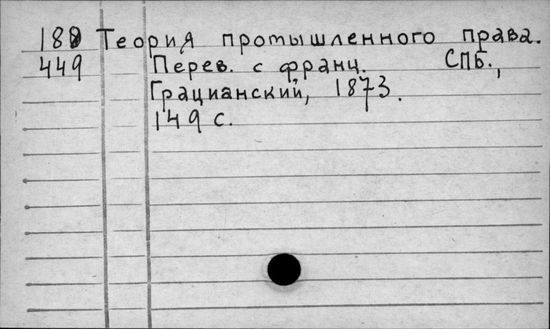 180 Теория промышленного права.
449 Перев. с франц. СПБ.,
Грацианский, 1873.
149 с.